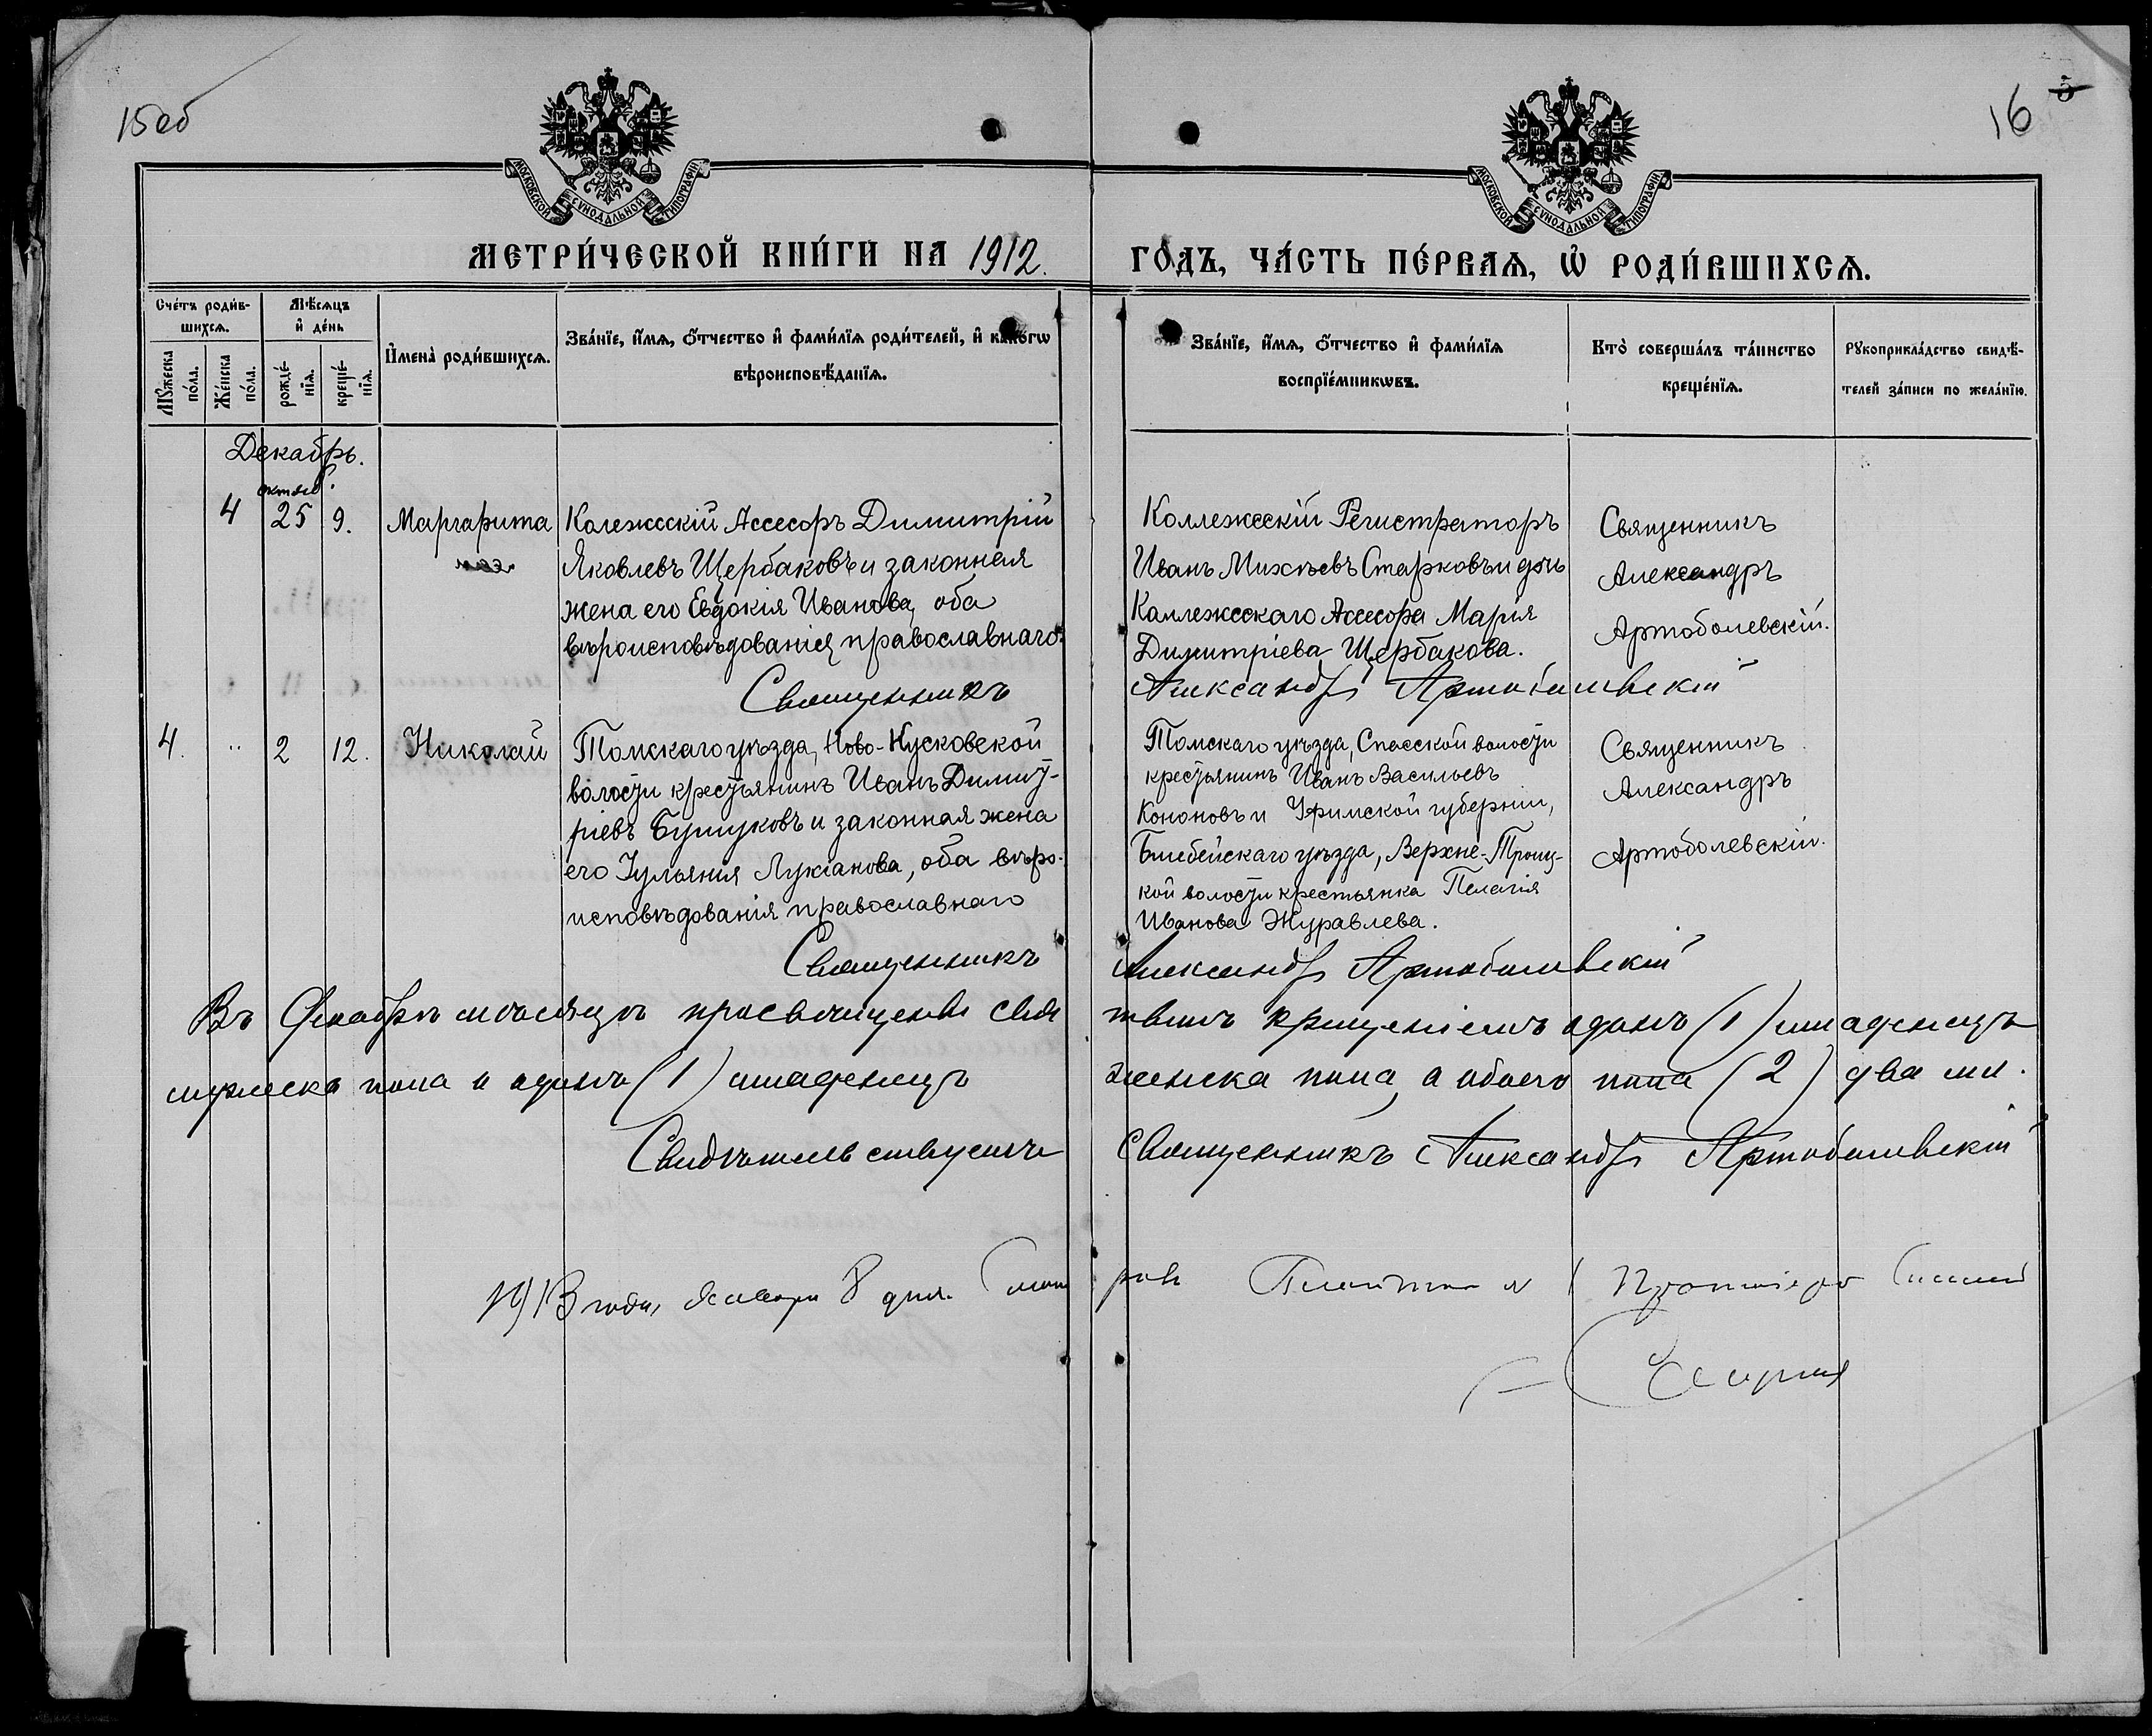 15 об
16 5
МОСКОВСКОЙ СѴНОДАЛЬНОЙ ТИПОГРАФІИ
МОСКОВСКОЙ СѴНОДАЛЬНОЙ ТИПОГРАФІИ
МЕТРИ́ЧЕСКОЙ КНИ́ГИ НА 1912.
ГО́ДЪ, ЧА́СТЬ ПЕ́РВАѦ, Ѽ РОДИ́ВШИХСѦ.
Сче́тъ роди́в-
шихсѧ.
Мѣ́сѧцъ
и҆ де́нь
Мꙋ́жеска
по́ла.
Же́нска
по́ла.
рожде́-
нїѧ.
креще́-
нїѧ.
И҆мена̀ роди́вшихсѧ.
Зва́нїе, и҆́мѧ, ѻ҆́тчество и҆ фами́лїѧ роди́телей, и҆ како́гѡ
вѣроисповѣ́данїѧ.
Зва́нїе, и҆́мѧ, ѻ҆́тчество и҆ фами́лїѧ
воспрїе́мникѡвъ.
Кто̀ соверша́лъ та́инство
креще́нїѧ.
Рꙋкоприкла́дство свидѣ́-
телей за́писи по жела́нїю.
Декабрь.
4 25 9. Маргарита
Колежсскій Ассесоръ Димитрій
Яковлевъ Щербаковъ и законная
жена его Евдокія Иванова, оба
вѣроисповѣдованія православнаго.
Священникъ
Коллежсскій Регистраторъ
Иванъ Михѣевъ Старковъ и дочь
Коллежсскаго Ассесора Марія
Димитріева Щербакова.
Александръ Артоболевскій
Священникъ
Александръ
Артоболевскій.
4. " 2 12. Николай
Томскаго уѣзда, Ново-Кусковской
волости крестьянинъ Иванъ Димит-
ріевъ и законная жена
его Іульянія Лукіанова, оба вѣро-
исповѣдованія православнаго
Священникъ
Томскаго уѣзда, Спасской волости
крестьянинъ Иванъ Васильевъ
Кононовъ и Уфимской губерніи,
Белебейскаго уѣзда, Верхне-Троиц-
кой волости крестьянка Пелагія
Иванова Журавлева.
Александръ Артоболевскій
Священникъ
Александръ
Артоболевскій.
Въ Декабрѣ мѣсяцѣ просвѣщены свя тымъ крещеніемъ одинъ (1) младенецъ
мужеска пола и одинъ (1) младенецъ женска пола, а обоего пола (2) два мл.
Свидѣтельствуетъ Священникъ Александръ Артоболевскій
1913 года, Января 8 дня.